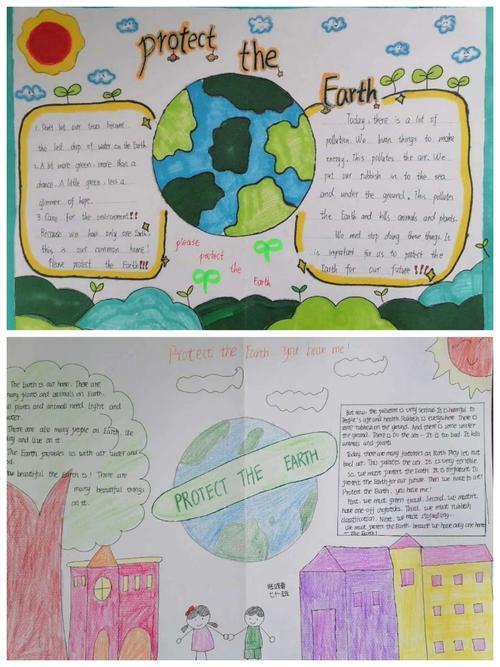 protect the Earth
1. Don't let our tears become
the last drop of water on the Earth
2. A bit more green, more than a
chance. A little green, less a
glimmer of hope.
3. Care for the environment!!!
Because we have only one Earth,
this is our common home!
Please protect the Earth!!!
Today, there is a lot of
pollution. We burn things to make
energy. This pollutes the air. We
put our rubbish in to the sea
and under the ground. This pollutes
the Earth and kills animals and plants.
We must stop doing these things. It
is important for us to protect the
Earth for our future!!!
please
protect
the
Earth
Protect the Earth you hear me!
The Earth is our home. There are
many plants and animals on Earth.
plants and animals need light and
water.
There are also many people on Earth. We
and live on it.
The Earth provides us with air, water and
beautiful the Earth is! There are
many beautiful things
on it.
PROTECT THE EARTH
But now the pollution is very serious. It is harmful to
people's life and health. Rubbish is everywhere. There is
some rubbish on the ground. And there is some under
the ground. It is too bad. It kills
animals and plants.
Today, there are many factories on Earth. They let out
bad air. This pollutes the air. It is very terrible.
So, we must protect the Earth. It is important to
protect the Earth for our future. Then we have to do!
Protect the Earth, you have me!
First, we must green travel. Second, we
have one-off chopsticks. Third, we must rubbish
classification. Next, we must
We must protect the Earth because we have only one home
— the Earth!
七(一)班